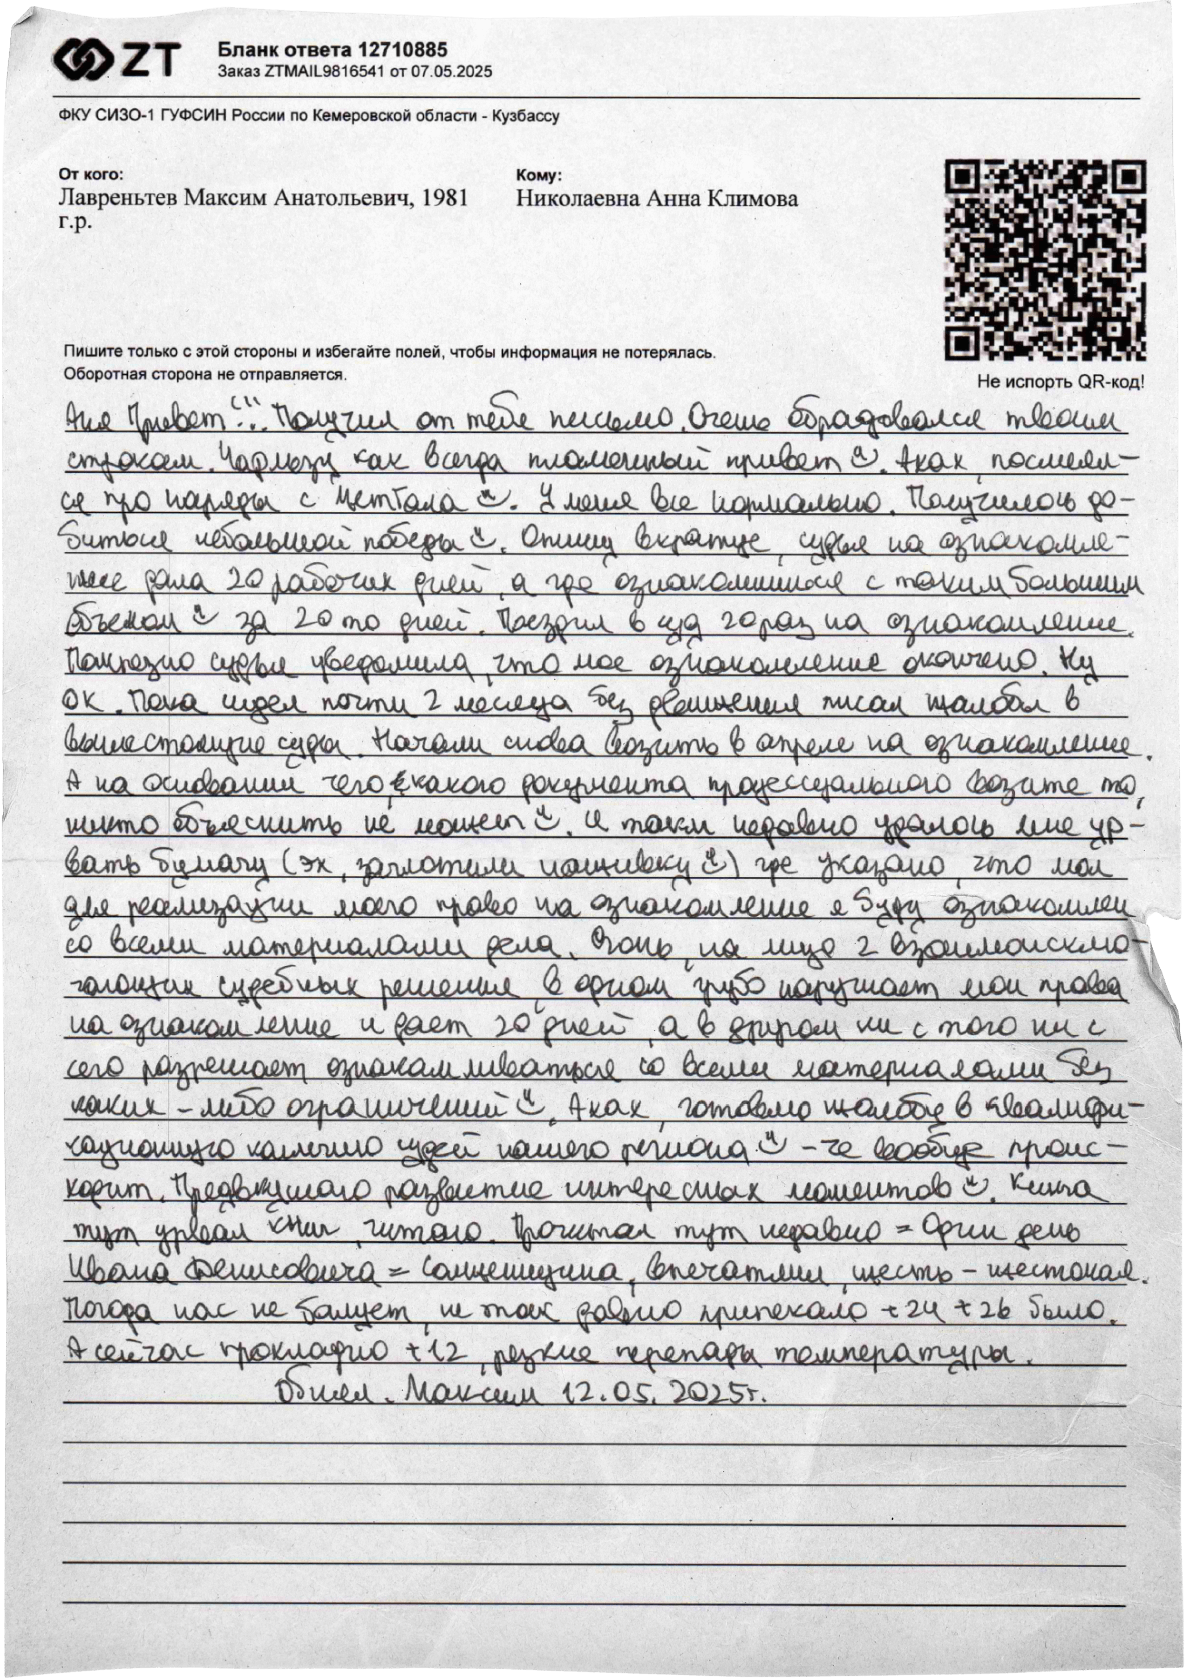 ZT
Бланк ответа 12710885
Заказ ZTMAIL9816541 от 07.05.2025
ФКУ СИЗО-1 ГУФСИН России по Кемеровской области - Кузбассу
От кого:
Лавреньтев Максим Анатольевич, 1981
г.р.
Кому:
Николаевна Анна Климова
Пишите только с этой стороны и избегайте полей, чтобы информация не потерялась.
Оборотная сторона не отправляется.
Не испорть QR-код!
Аня Привет!!! Получил от тебе письмо. Очень обрадовался твоим
строкам. как всегда пламенный привет. Ахах, посмеял-
ся про наряды с . У меня все нормально. Получилось до-
биться небольшой победы. Опишу вкратце, судья на ознакомле-
ние дала 20 рабочих дней, а где ознакомишься с таким большим
объемом за 20 то дней. Поездил в суд 20 раз на ознакомление.
судья уведомила, что мое ознакомление окончено. Ну
ОК. Пока сидел почти 2 месяца без движения писал жалобы в
вышестоящие суды. Начали снова возить в апреле на ознакомление.
А на основании чего, какого документа процессуального возите то,
никто объяснить не может. И таки недавно удалось мне ур-
вать бумагу (эх, зачлотили нашивку) где указано, что мол
для реализации моего право на ознакомление я буду ознакомлен
со всеми материалами дела. Огонь, на лицо 2 взаимоисклю-
чающих судебных решения, в одном грубо нарушает мои права
на ознакомление и дает 20 дней, а в другом ни с того ни с
сего разрешает ознакамливаться со всеми материалами без
каких-либо ограничений. Ахах, готовлю жалобу в квалифи-
кационную коллегию судей нашего региона - че вообще проис-
ходит. Предвкушаю развитие интересных моментов. Книга
тут урвал книг, читаю. Прочитал тут недавно = Один день
Ивана Денисовича = Солженицина, впечатлил, жесть - жестокая.
Погода нас не балует, не так давно припекало +24 +26 было.
А сейчас прохладно +12, резкие перепады температуры.
Обнял. Максим 12.05.2025г.